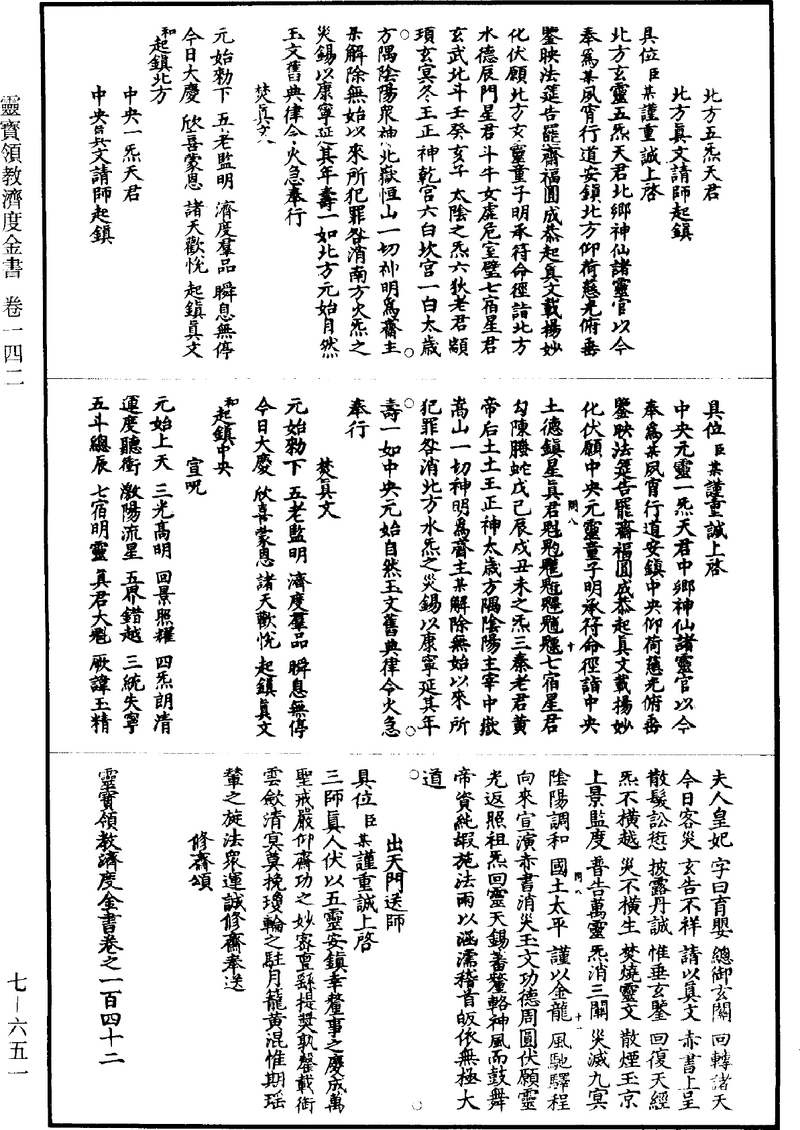 靈寶領教濟度金書 卷一四二
七－六五一
北方五炁天君
北方眞文請師起鎮
具位臣某謹重誠上啓
北方玄靈五炁天君北鄉神仙諸靈官以今
奉爲某夙宵行道安鎮北方仰荷慈光俯垂
鑒映法筵告罷齋福圓成恭起真文載揚妙
化伏願北方玄靈童子明承符命徑詣北方
水德辰門星君斗牛女虛危室壁七宿星君
玄武北斗壬癸亥子太陰之炁六狄老君顓
頊玄冥冬王正神乾宮六白坎宮一白太歲
方隅陰陽衆神北嶽恒山一切神明爲齋主
某解除無始以來所犯罪咎消南方火炁之
災錫以康寧延其年壽一如北方元始自然
玉文舊典律令火急奉行
焚真文
元始勑下 五老監明 濟度羣品 瞬息無停
今日大慶 欣喜蒙恩 諸天歡悅 起鎮真文
和起鎮北方
中央一炁天君
中央眞文請師起鎮
具位臣某謹重誠上啓
中央元靈一炁天君中鄉神仙諸靈官以今
奉爲某夙宵行道安鎮中央仰荷慈光俯垂
鑒映法筵告罷齋福圓成恭起真文載揚妙
化伏願中央元靈童子明承符命徑詣中央
土德鎮星真君魁𩲃䰢魓魒七宿星君
勾陳螣蛇戊己辰戌丑未之炁三秦老君黃
帝后土土王正神太歲方隅陰陽主宰中嶽
嵩山一切神明爲齋主某解除無始以來所
犯罪咎消北方水炁之災錫以康寧延其年
壽一如中央元始自然玉文舊典律令火急
奉行
焚真文
元始勑下 五老監明 濟度羣品 瞬息無停
今日大慶 欣喜蒙恩 諸天歡悅 起鎮真文
和起鎮中央
宣呪
元始上天 三光高明 回景照耀 四炁朗清
運度聽衝 激陽流星 五界錯越 三統失寧
五斗總辰 七宿明靈 真君大魁 厥諱玉精
夫人皇妃 字曰育嬰 總御玄關 回轉諸天
今日客災 玄告不祥 請以真文 赤書上呈
散髮訟愆 披露丹誠 惟垂玄鑒 回復天經
炁不橫越 災不橫生 焚燒靈文 散煙玉京
上景監度 普告萬靈 炁消三關 災滅九冥
陰陽調和 國土太平 謹以金龍 風馳驛程
向來宣演赤書消災玉文功德周圓伏願靈
光返照祖炁回靈天錫蕃釐輅神風而鼓舞
帝資純嘏施法雨以涵濡稽首皈依無極大
道
出天門送師
具位臣某謹重誠上啓
三師真人伏以五靈安鎮幸釐事之慶成萬
聖戒嚴仰齋功之妙密亶繇提獎孰罄載銜
雲斂清冥莫挽瓊輪之駐月籠黃混惟期瑶
輦之旋法衆運誠修齋奉送
修齋頌
靈寶領教濟度金書卷之一百四十二